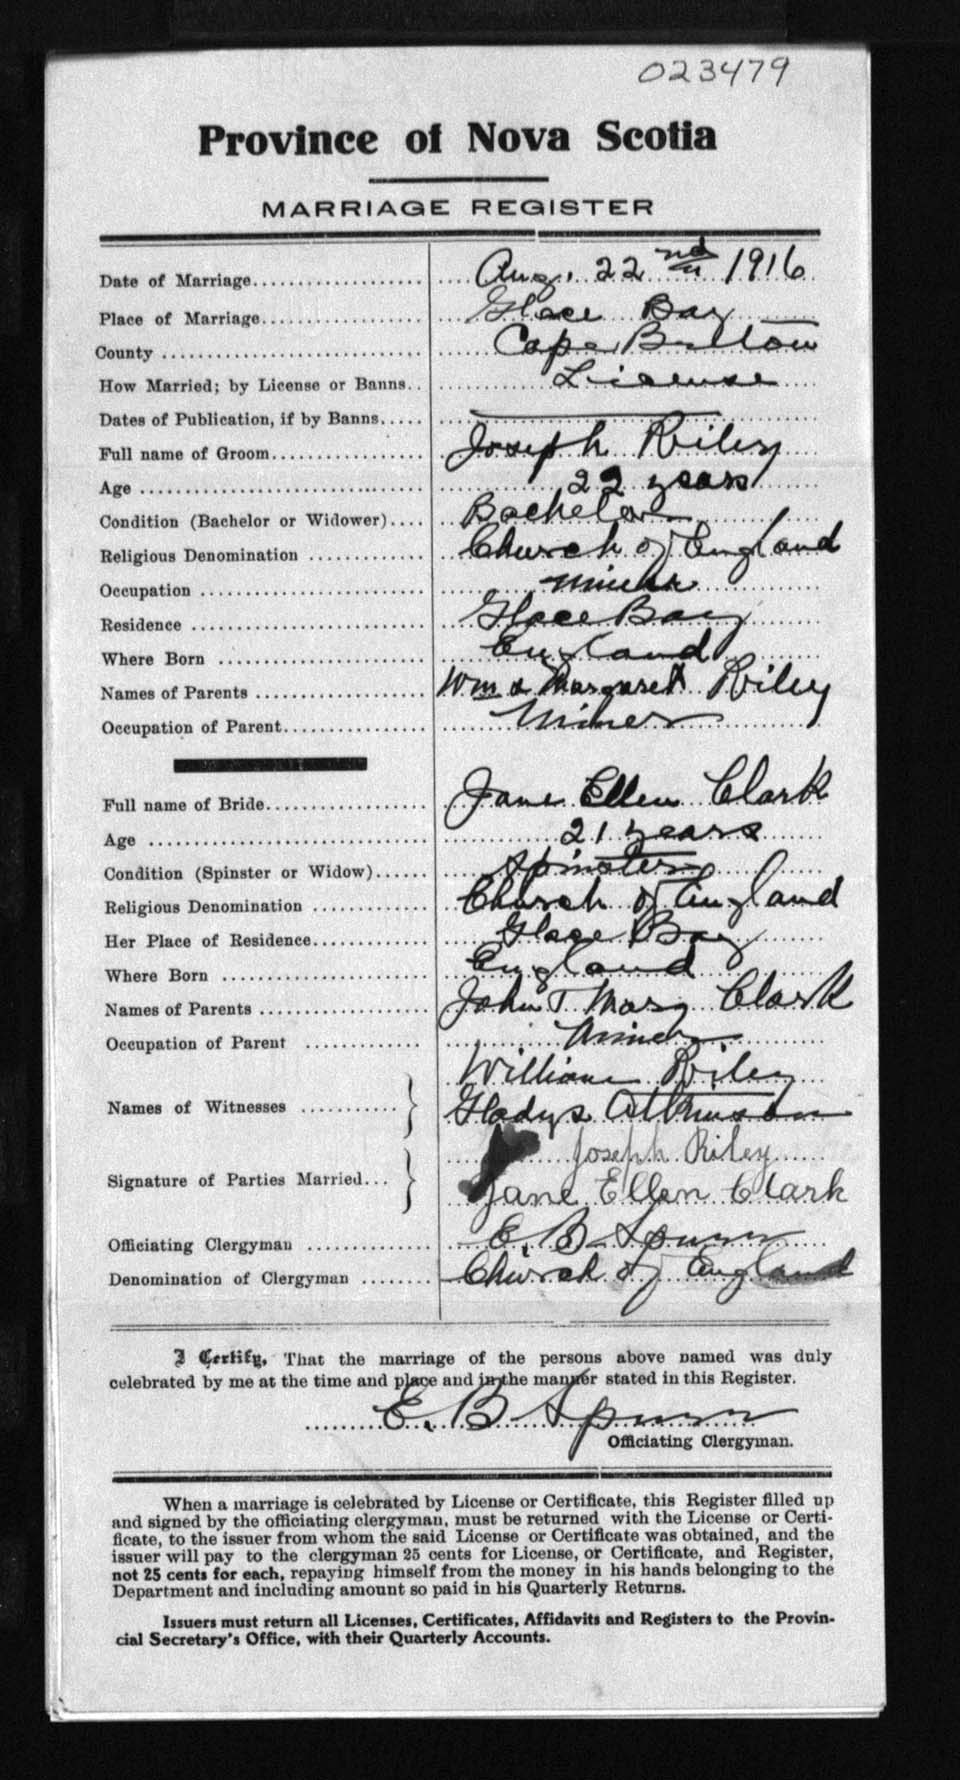 023479
Province of Nova Scotia
MARRIAGE REGISTER
Date of Marriage.................... Aug. 22nd 1916
Place of Marriage.................. Glace Bay
County ............................. Cape Breton
How Married; by License or Banns.. License
Dates of Publication, if by Banns.....
Full name of Groom................. Joseph Riley
Age ................................ 22 years
Condition (Bachelor or Widower).... Bachelor
Religious Denomination ............. Church of England
Occupation ......................... Miner
Residence .......................... Glace Bay
Where Born ....................... England
Names of Parents ................... Wm & Margaret Riley
Occupation of Parent................ Miner
Full name of Bride.................. Jane Ellen Clark
Age ............................... 21 years
Condition (Spinster or Widow)...... Spinster
Religious Denomination ............. Church of England
Her Place of Residence............. Glace Bay
Where Born ....................... England
Names of Parents ................... John T Mary Clark
Occupation of Parent ............. Miner
William Riley
Names of Witnesses ...........
Gladys Atkinson
Joseph Riley
Signature of Parties Married...
Jane Ellen Clark
Officiating Clergyman .............. E. B. Spurr
Denomination of Clergyman ........ Church of England
I Certify, That the marriage of the persons above named was duly
celebrated by me at the time and place and in the manner stated in this Register.
E. B. Spurr
Officiating Clergyman.
When a marriage is celebrated by License or Certificate, this Register filled up
and signed by the officiating clergyman, must be returned with the License or Certi-
ficate, to the issuer from whom the said License or Certificate was obtained, and the
issuer will pay to the clergyman 25 cents for License, or Certificate, and Register,
not 25 cents for each, repaying himself from the money in his hands belonging to the
Department and including amount so paid in his Quarterly Returns.
Issuers must return all Licenses, Certificates, Affidavits and Registers to the Provin-
cial Secretary's Office, with their Quarterly Accounts.